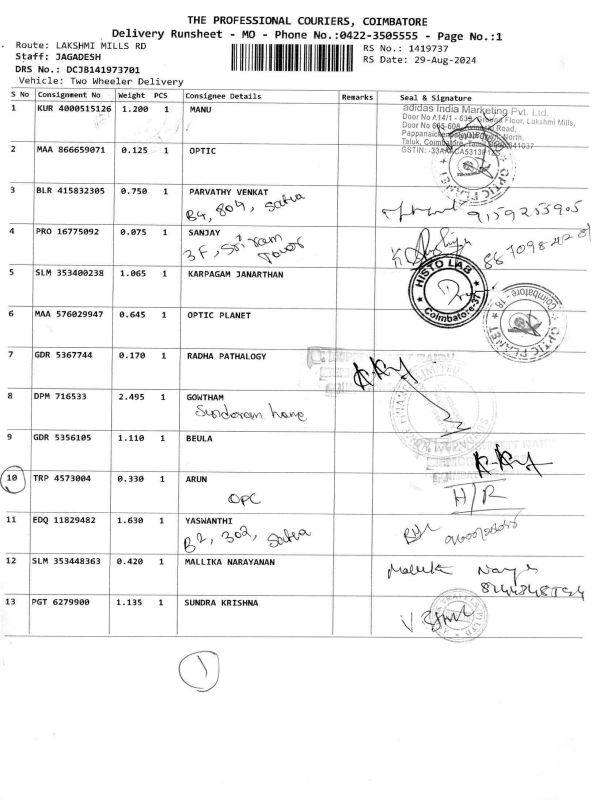 THE PROFESSIONAL COURIERS, COIMBATORE
Delivery Runsheet - MO - Phone No.:0422-3505555 - Page No.:1
Route: LAKSHMI MILLS RD RS No.: 1419737
Staff: JAGADESH RS Date: 29-Aug-2024
DRS No.: DCJB141973701
Vehicle: Two Wheeler Delivery
S No Consignment No Weight PCS Consignee Details Remarks Seal & Signature
1 KUR 4000515126 1.200 1 MANU
adidas India Marketing Pvt. Ltd.
2 MAA 866659071 0.125 1 OPTIC
OPTIC PLANET
3 BLR 415832305 0.750 1 PARVATHY VENKAT
B4, 804, Satva
9159253905
4 PRO 16775092 0.075 1 SANJAY
3F, Sri ram
Tower
5 SLM 353400238 1.065 1 KARPAGAM JANARTHAN
HISTO LAB
6 MAA 576029947 0.645 1 OPTIC PLANET
OPTIC PLANET
Coimbatore - 18
7 GDR 5367744 0.170 1 RADHA PATHALOGY
8 DPM 716533 2.495 1 GOWTHAM
Sundaram home
9 GDR 5356105 1.110 1 BEULA
10 TRP 4573004 0.330 1 ARUN
OPC
H/R
11 EDQ 11829482 1.630 1 YASWANTHI
B2, 302, Satva
12 SLM 353448363 0.420 1 MALLIKA NARAYANAN
Mallika
13 PGT 6279900 1.135 1 SUNDRA KRISHNA
1